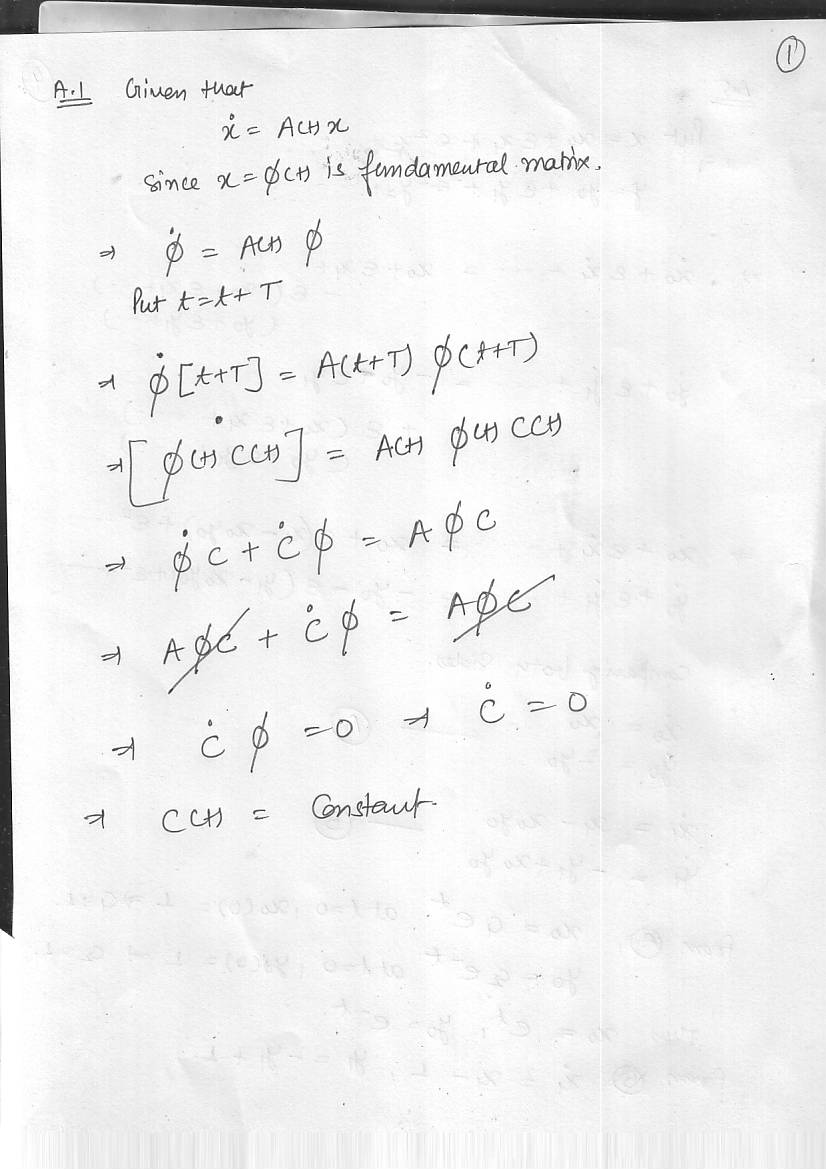 1
A.1 Given that
ẋ = A(t) x
Since x = ϕ(t) is fundamental matrix.
⇒ ϕ̇ = A(t) ϕ
Put t = t + T
⇒ ϕ̇ [t+T] = A(t+T) ϕ(t+T)
⇒ [ϕ(t) C(t)]̇ = A(t) ϕ(t) C(t)
⇒ ϕ̇ C + Ċ ϕ = A ϕ C
⇒ A ϕ C + Ċ ϕ = A ϕ C
⇒ Ċ ϕ = 0 ⇒ Ċ = 0
⇒ C(t) = Constant.